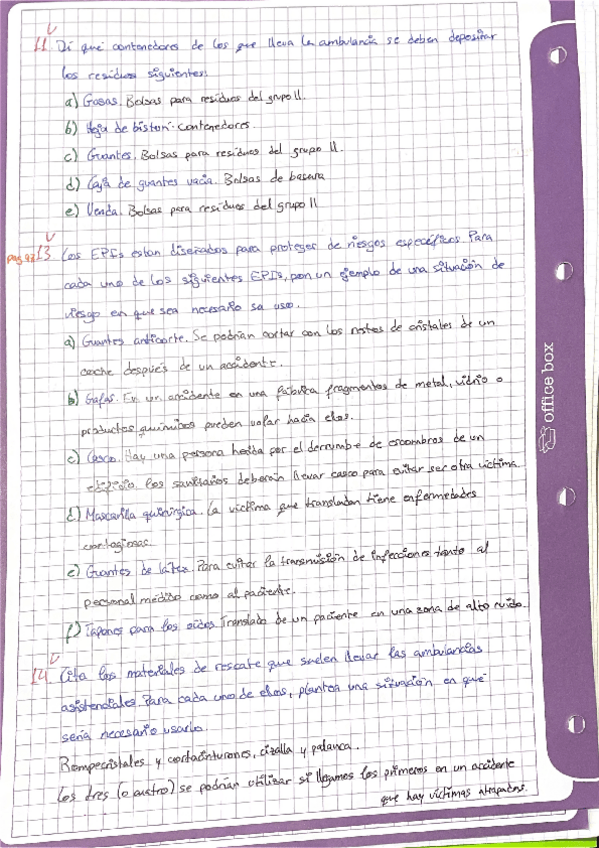 11. Di qué contenedores de los que lleva la ambulancia se deben depositar
los residuos siguientes:
a) Gasas. Bolsas para residuos del grupo II.
b) Hoja de bisturí. contenedores.
c) Guantes. Bolsas para residuos del grupo II.
d) Caja de guantes vacía. Bolsas de basura
e) Venda. Bolsas para residuos del grupo II
pag.93 13. Los EPIs estan diseñados para proteger de riesgos específicos. Para
cada uno de los siguientes EPIs, pon un ejemplo de una situación de
riesgo en que sea necesario su uso.
a) Guantes anticorte. Se podrian cortar con los restos de cristales de un
coche después de un accidente.
b) Gafas. En un accidente en una fábrica fragmentos de metal, vidrio o
productos químicos pueden volar hacia ellos.
c) Casco. Hay una persona herida por el derrumbe de escombros de un
edificio. Los sanitarios deberán llevar casco para evitar ser otra víctima.
d) Mascarilla quirúrgica. La víctima que transladan tiene enfermedades
contagiosas.
e) Guantes de látex. Para evitar la transmisión de infecciones tanto al
personal médido como al paciente.
f) Tapones para los oidos. Translado de un paciente en una zona de alto ruido.
14. Cita los materiales de rescate que suelen llevar las ambulancias
asistenciales. Para cada uno de ellos, plantea una situación en que
sería necesario usarlo.
Rompecristales y cortacinturones, cizalla y palanca.
Los tres (o cuatro) se podrían utilizar si llegamos los primeros en un accidente
que hay víctimas atrapadas.
office box